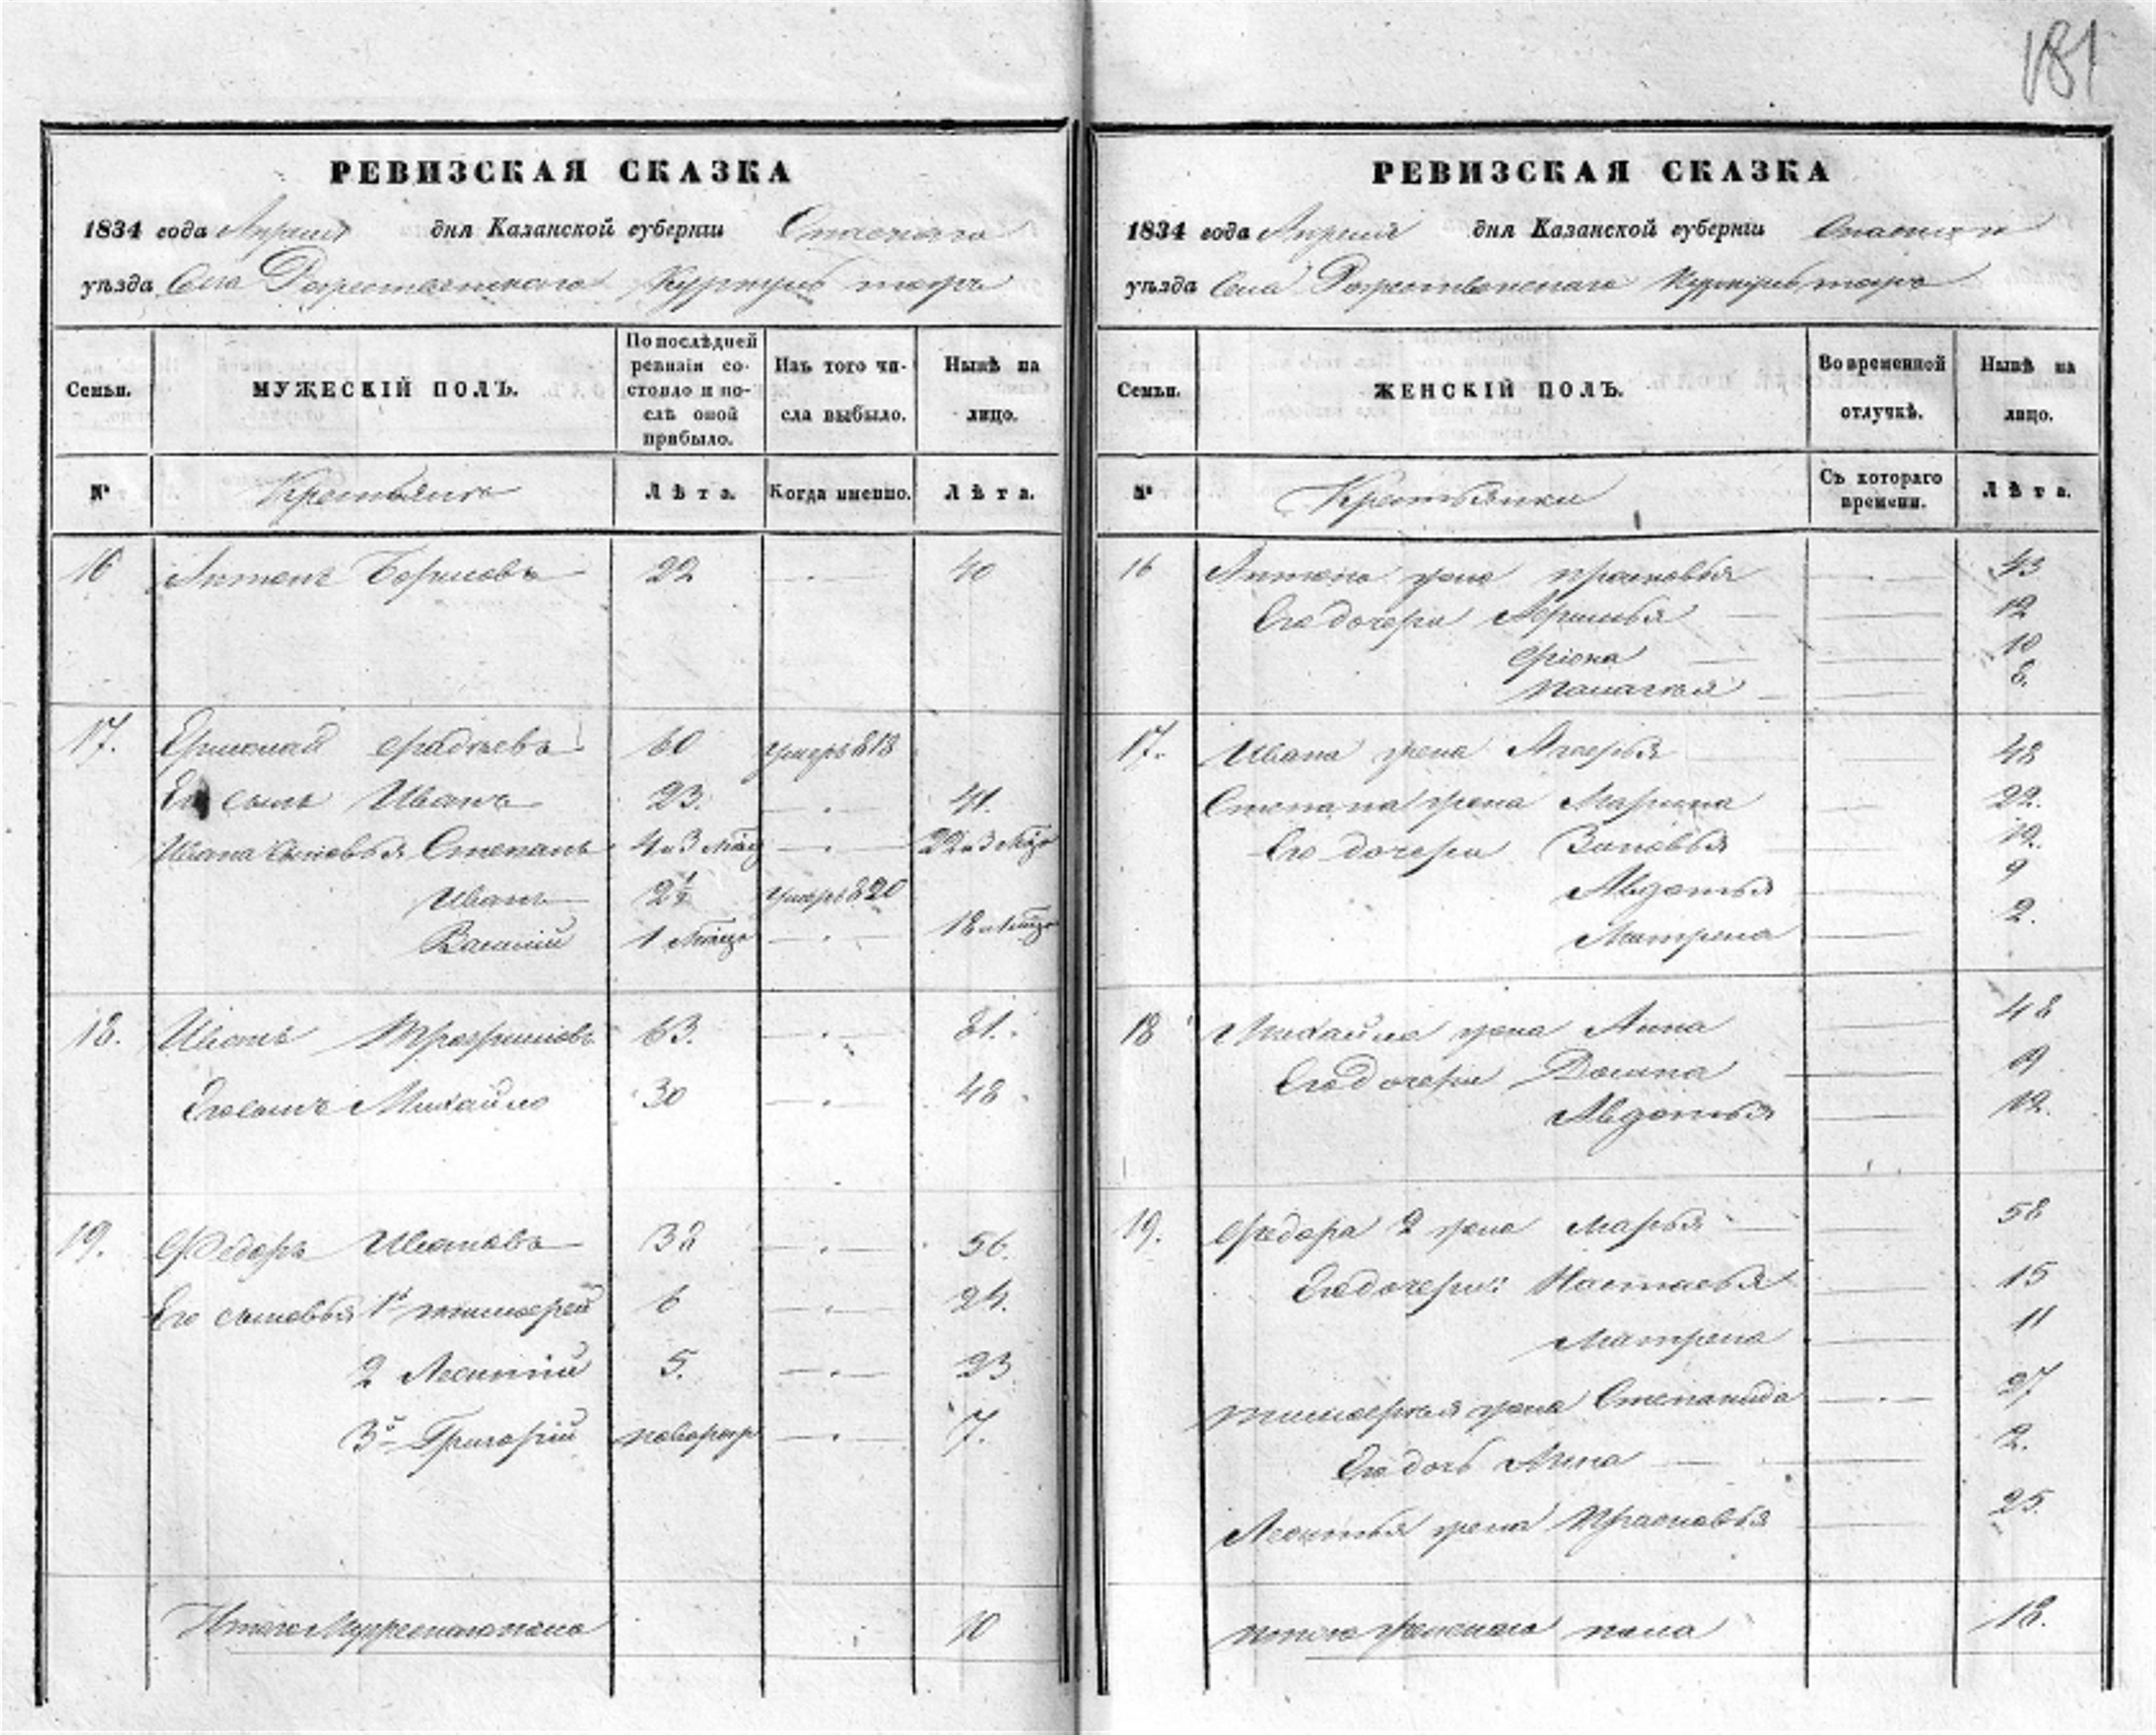 181
РЕВИЗСКАЯ СКАЗКА
1834 года Апреля дня Казанской губерніи Спаскаго
уѣзда Села Рожественскаго Куркуль тожъ
Семьи. МУЖЕСКІЙ ПОЛЪ. По послѣдней ревизіи состояло и послѣ оной прибыло. Изъ того числа выбыло. Нынѣ на лицо.
№ Крестьяне Лѣта. Когда именно. Лѣта.
16 Антонъ Борисовъ 22 — 40
17. Ермолай 60 умеръ 818
Его сынъ Иванъ 23. — 41.
Ивана сыновья Степанъ 4 и 3 — 22 и 3
Иванъ 2½ умеръ 820
Василий 1 — 18 и 1
18. Иванъ Трофимовъ 63. — 81.
Его сынъ Михайло 30 — 48
19. Федоръ Ивановъ 38 — 56.
Его сыновья 1й тимофей 6 — 24.
2 Леонтий 5. — 23
3й Григорій новорож — 7.
Итого Мужескаго пола 10
РЕВИЗСКАЯ СКАЗКА
1834 года Апреля дня Казанской губерніи Спаскаго
уѣзда Села Рожественскаго Куркуль тожъ
Семьи. ЖЕНСКІЙ ПОЛЪ. Во временной отлучкѣ. Нынѣ на лицо.
№ Крестьянки Съ котораго времени. Лѣта.
16 Антона жена прасковья — 43
Его дочери — 12
— 10
палагея — 8.
17. Ивана жена — 48
Степана жена Марина — 22.
Его дочери Зиновья — 12.
Авдотья — 9
Матрена — 2.
18 Михайла жена Анна — 48
Его дочери Домна — 9
Авдотья — 12.
19. Федора 2 жена Марья — 58
Его дочери: Настасья — 15
Матрена — 11
тимофея жена Степанида — 27
Его дочь Анна — 2.
Леонтья жена Прасковья — 25.
итого женскаго пола 18.